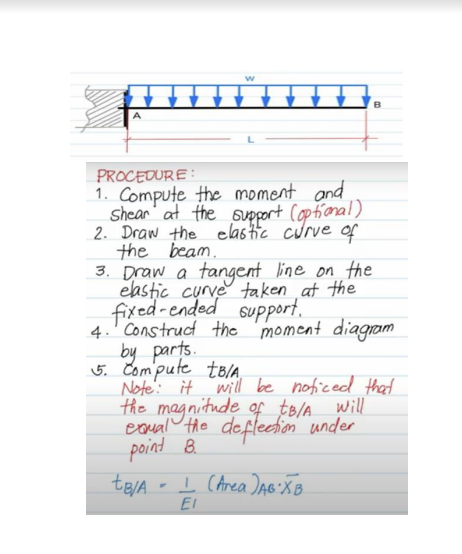 w
B
A
L
PROCEDURE:
1. Compute the moment and
shear at the support (optional)
2. Draw the elastic curve of
the beam.
3. Draw a tangent line on the
elastic curve taken at the
fixed-ended support.
4. Construct the moment diagram
by parts.
5. Compute tB/A
Note: it will be noticed that
the magnitude of tB/A will
equal the deflection under
point B.
tB/A = 1/EI (Area)AB·X̄B